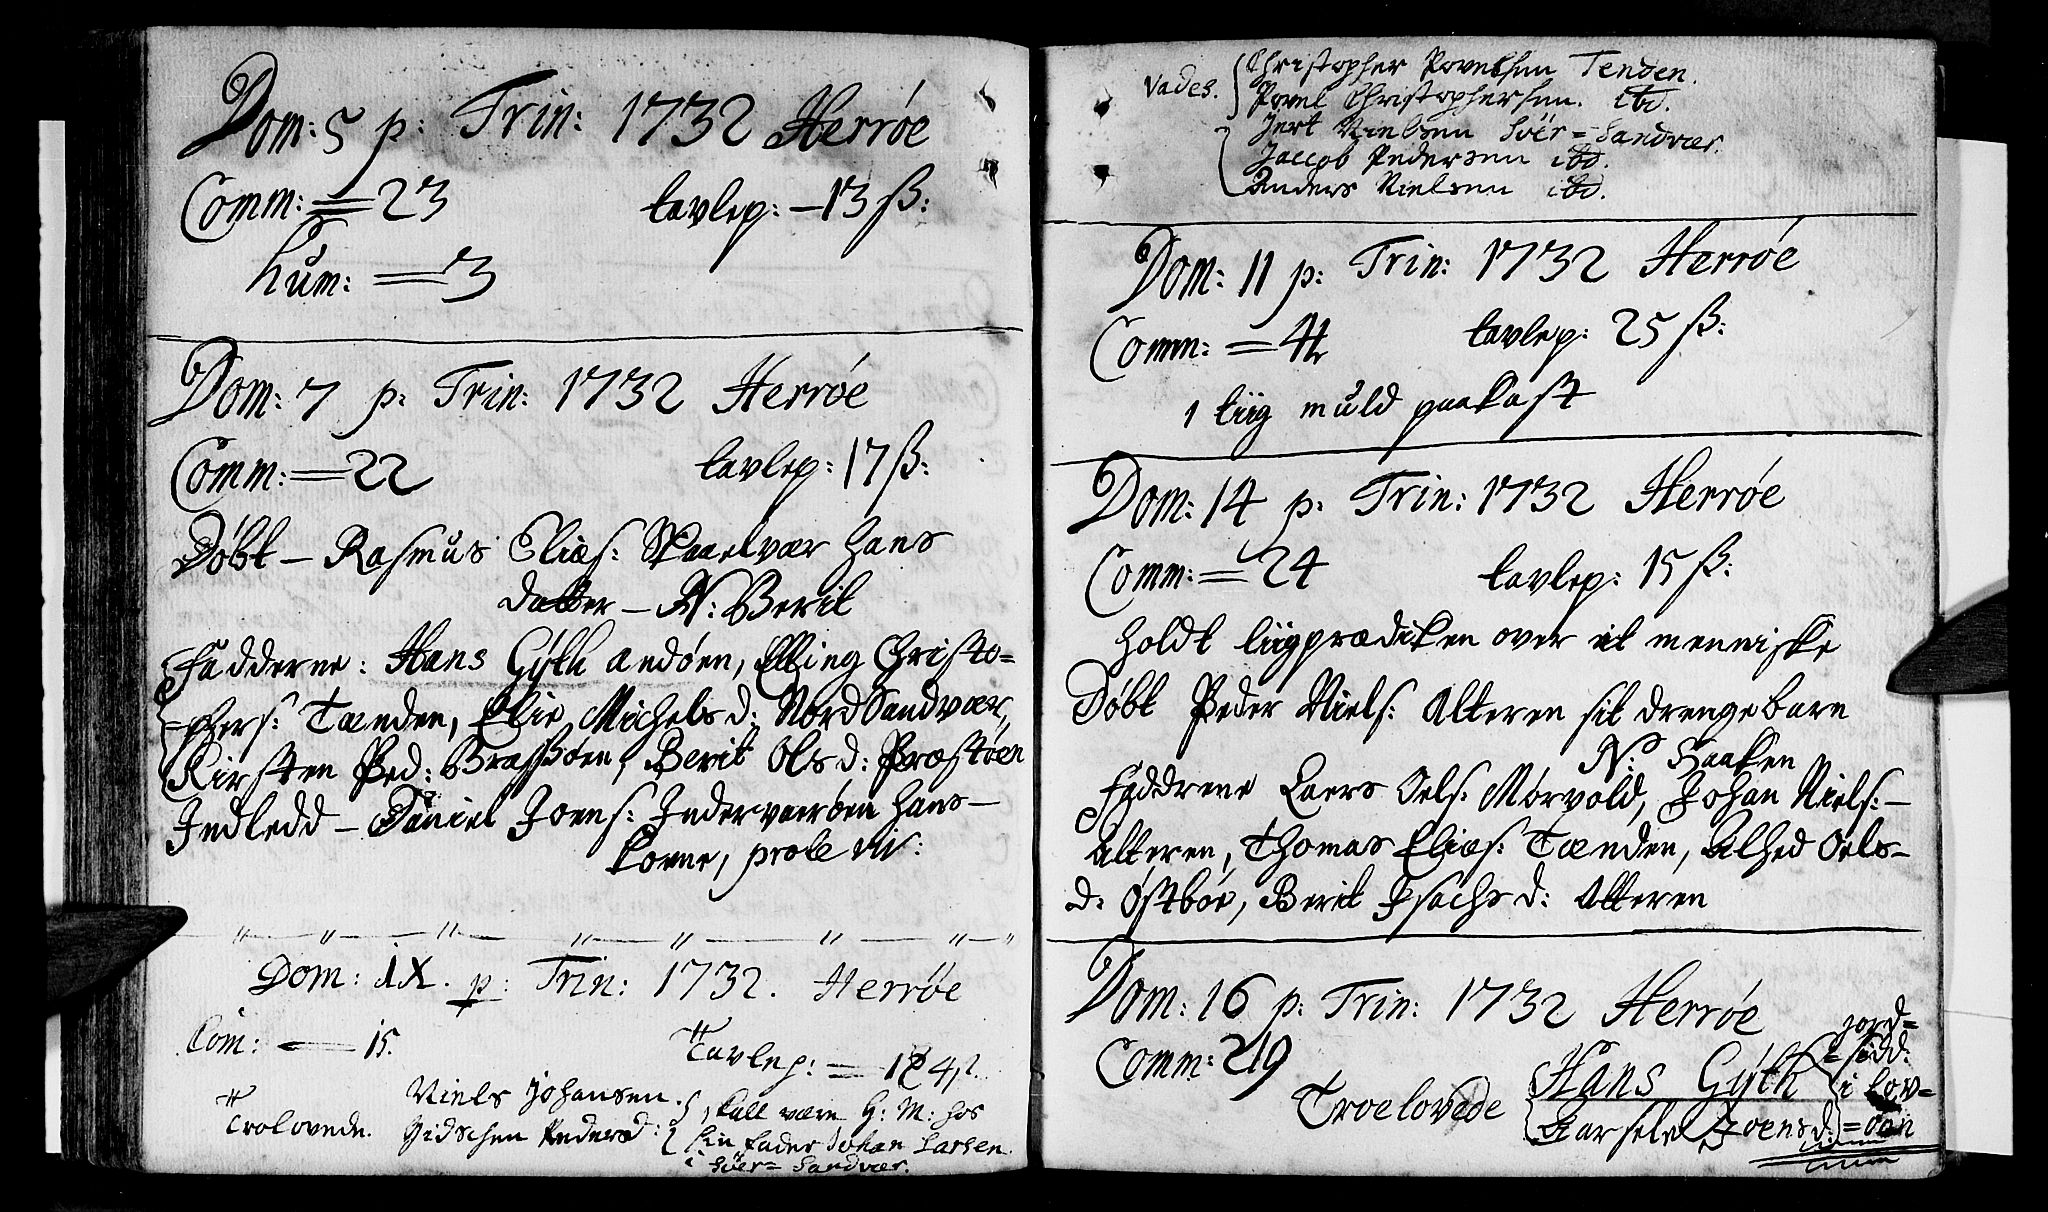 Dom: 5 p: Trin: 1732 Herrøe
Comm: = 23 tavlep: – 13 ß:
hum: = 3
Dom: 7 p: Trin: 1732 Herrøe
Comm: = 22 tavlep: 17 ß:
Døbt – Rasmus Elias: Skaalvær hans
datter – N: Berit
Fadderne: Hans Gÿth andøen, Elling Christo=
=phers: Tænden, Elie Michelsd: NordSandvær,
Kirsten Ped: Brasøen, Berit Olsd: Præstøen
Indledd – Daniel Joens: Indervaerøen hans –
kone, prole viv:
Dom: IX. p: Trin: 1732. Herrøe
Com: — 15. Tavlep: = 4 ß.
Trolovede. Niels Johansen. skall være G: M: hos
Gidschen Pedersd: sin fader Johan Larsen
i Søer= Sandvær.
Vades. Christopher Povelsen Tenden.
Povel Christophersen. ibd.
Jert Nielsen Søer= Sandvær.
Jacob Pedersen ibd.
Anders Nielsen ibd.
Dom: 11 p: Trin: 1732 Herrøe
Comm: = 4 tavlep: 25 ß:
1 liig muld paakast
Dom: 14 p: Trin: 1732 Herrøe
Comm: = 24 tavlep: 15 ß:
holdt liigprædicken over et menniske
Døbt Peder Niels: Alteren sit drengebarn
N: Haaken
Faddrene Laers Oels: Mørvold, Johan Niels: –
Alteren, Thomas Elias: Tænden, Alhed Oels–
d: Østbøe, Berit Isachsd: Alteren
Dom: 16 p: Trin: 1732 Herrøe
Comm: 219
Troelovede Hans Gÿth
Joensd:
jord=
=sidd:
i Lov=
=øen